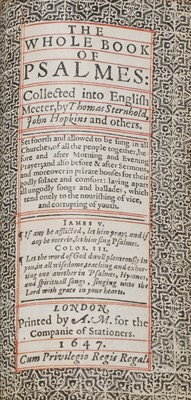 THE
WHOLE BOOK
OF
PSALMES:
Collected into Engliſh
Meeter, by Thomas Sternhold,
John Hopkins and others.
Set foorth and allowed to be ſung in all
Churches, of all the people together, be-
fore and after Morning and Evening
Prayer, and alſo before & after Sermons
and moreover in private houſes for their
godly ſolace and comfort: laying apart
all ungodly ſongs and ballades, which
tend onely to the nouriſhing of vice,
and corrupting of youth.
IAMES V.
¶ If any be afflicted, let him pray; and if
any be merrie, let him ſing Pſalmes.
COLOS. III.
¶ Let the word of God dwell plenteouſly in
you, in all wiſedome, teaching and exhor-
ting one another in Pſalmes, Hymnes,
and ſpirituall ſongs, ſinging unto the
Lord with grace in your hearts.
LONDON,
Printed by A. M. for the
Companie of Stationers.
1647.
Cum Privilegio Regis Regali.